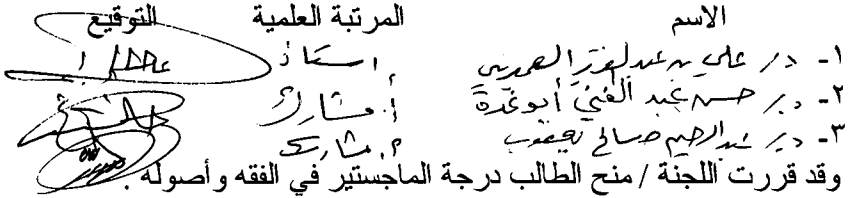 الاسم المرتبة العلمية التوقيع
١- د/ علي بن عبدالعزيز العميريني أستاذ
٢- د/ حسن عبد الغني أبوغدة أ. مشارك
٣- د/ عبدالرحيم صالح يعقوب أ. مشارك
وقد قررت اللجنة / منح الطالب درجة الماجستير في الفقه وأصوله .